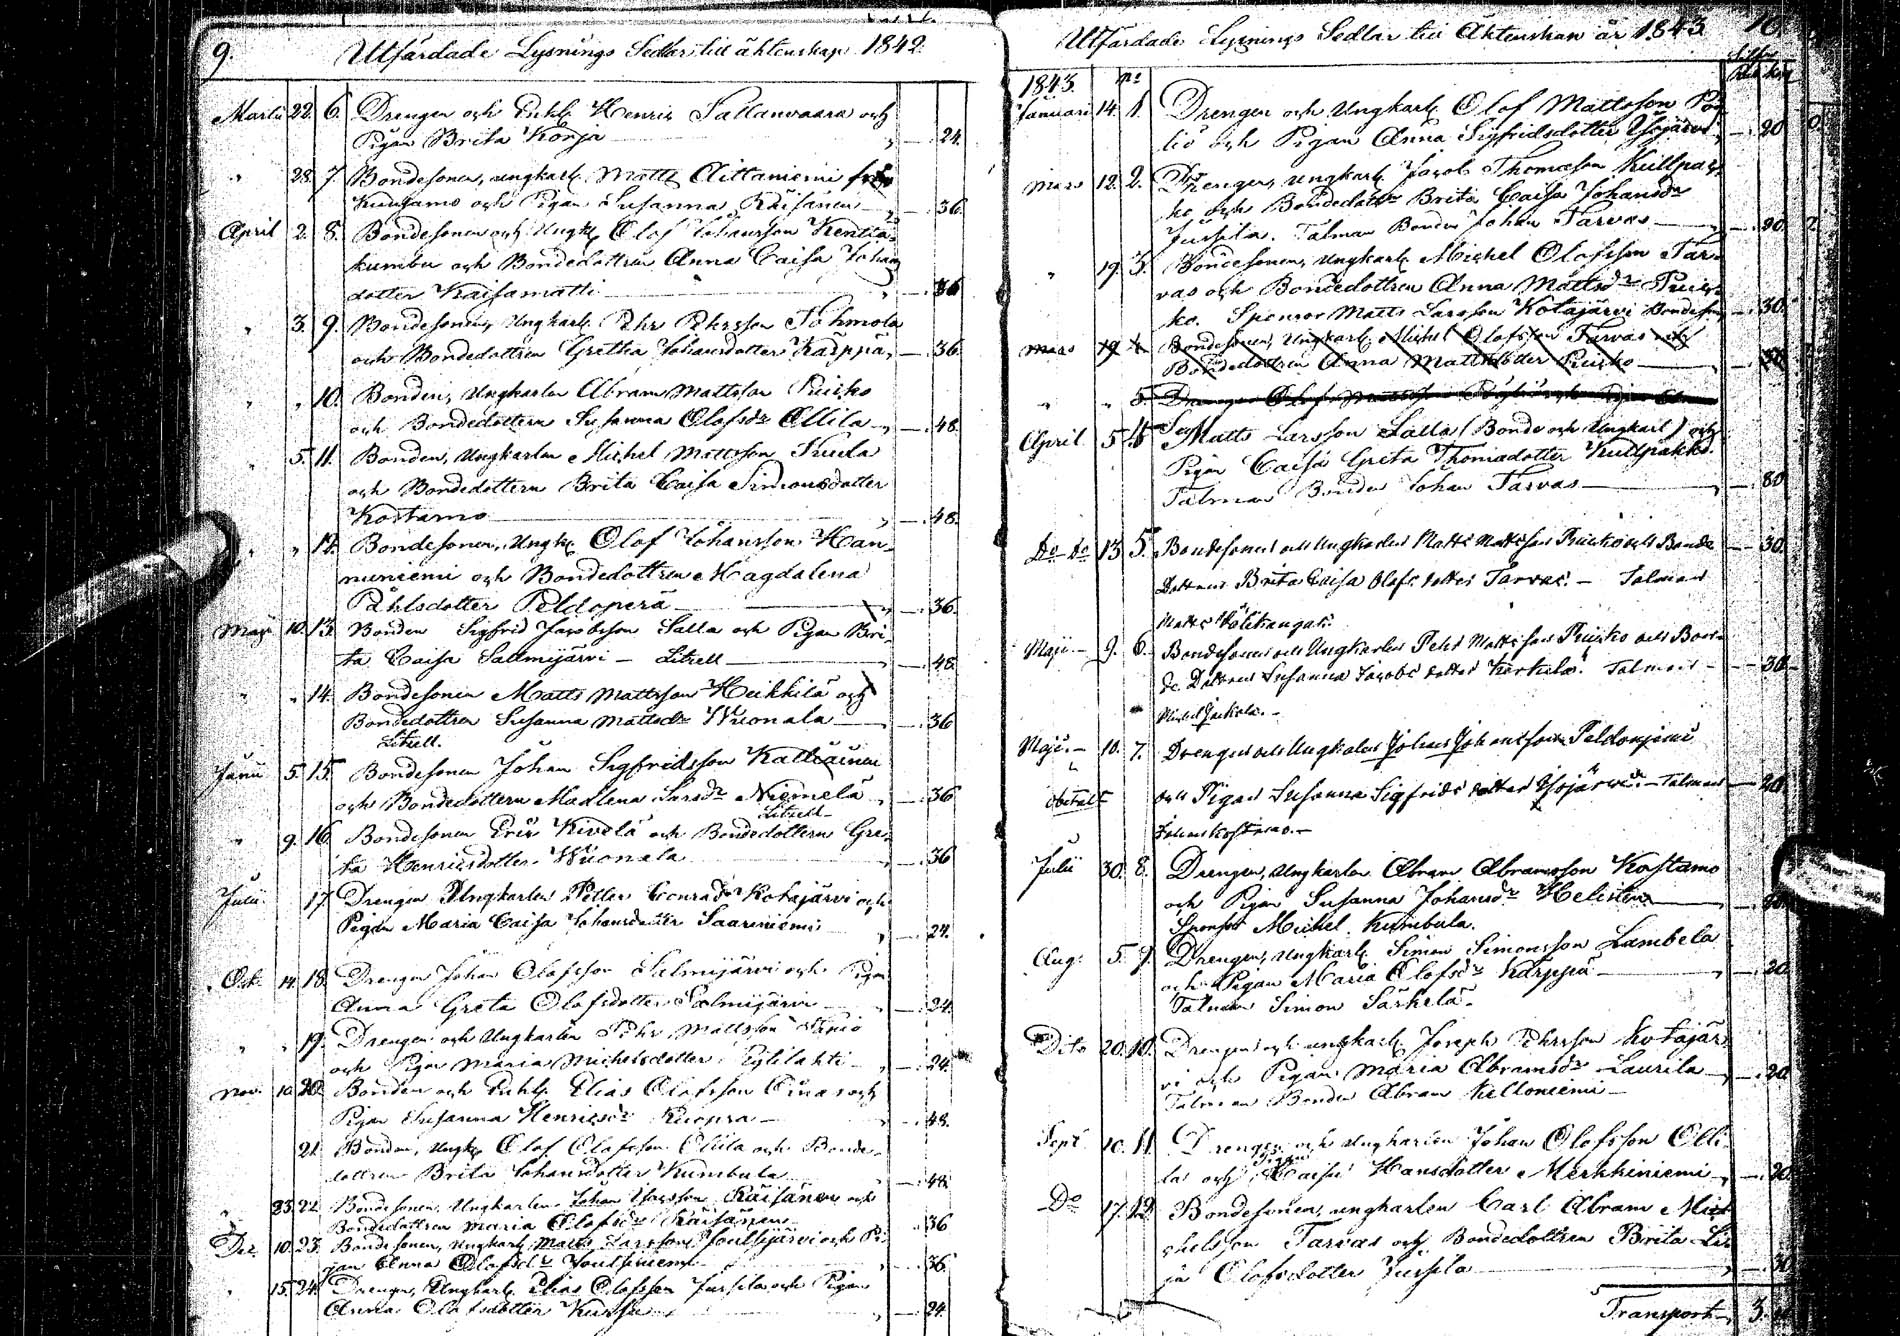 9. Utfärdade Lysnings Sedlar till äktenskap 1842.
Martii 22. 6. Drengen och Enkl. Henric Sallanvaara och
Pigan Brita Konja 24.
" 28. 7. Bondesonen, ungkarl. Matts Aittaniemi från
Kuusamo och Pigan Susanna Räisänen 36.
April 2. 8. Bondesonen och Ungk. Olof Johansson Kentiä-
kumbu och Bondedottren Anna Caisa Johans
dotter Kaisamatti 36
" 3. 9. Bondesonen, Ungkarl. Pehr Pehrsson Lohmola
och Bondedottren Gretha Johansdotter Karppa, 36.
" " 10. Bonden, Ungkarlen Abram Mattsson Puisko
och Bondedottern Susanna Olofsdr Ollila 48.
" 5. 11. Bonden, Ungkarlen Michel Mattsson Kuula
och Bondedottern Brita Caisa Simonsdotter
Kostamo 48.
" " 12. Bondesonen, Ungk. Olof Johansson Hän-
nuniemi och Bondedottren Magdalena
Påhlsdotter Peldoperä 36.
Maji 10. 13. Bonden Sigfrid Jacobsson Salla och Pigan Bri-
ta Caisa Salmijärvi 48.
" " 14. Bondesonen Matts Mattsson Heikkilä och
Bondedottren Susanna Mattsdr Wuonala 36
Junii 5. 15. Bondesonen Johan Sigfridsson Kalliainen
och Bondedottern Madlena Larsdr Niemelä 36
" 9. 16. Bondesonen Eric Kivelä och Bondedottern Gre-
ta Henricsdotter Wuonala 36
Julii 17. Drengen Ungkarlen Petter Conrad Kotajärvi och
Pigan Maria Caisa Johansdotter Saariniemi 24.
Oct. 14. 18. Drengen Johan Olofsson Salmijärvi och Pigan
Anna Greta Olofsdotter Salmijärvi 24.
" " 19. Drengen och Ungkarlen Pehr Mattsson
och Pigan Maria Michelsdotter Pyhilahti 24.
Nov. 10. 20. Bonden och Enkl. Elias Olofsson Oinas och
Pigan Susanna Henricsdr Kuopsa 48.
21. Bonden, Ungk. Olof Olofsson Ollila och Bonde-
dottren Brita Johansdotter Kumbula 48
" 23. 22. Bondesonen, Ungkarlen Johan Larsson Räisänen och
Bondedottren Maria Olofsdr Räisänen 36
Dec. 10. 23. Bondesonen, Ungkarl. Matts Larsson Joutsijärvi och Pi-
gan Anna Olofsdr Joutsiniemi 36
" 15. 24. Drengen, Ungkarl. Elias Olofsson Jussila och Pigan
Anna Olofsdotter Kursu 24.
Utfärdade Lysnings Sedlar till Äktenskap år 1843. 10.
1843. No
Januari 14. 1. Drengen och Ungkarl. Olof Mattsson Pöy
liö och Pigan Anna Sigfridsdotter Ysijärvi 20
Mars 12. 2. Drengen, Ungkarl. Jacob Thomasson Kullpak-
ko och Bondedottr Brita Caisa Johansdr
Jussila. Talman Bonden Johan Tarvas 20.
" 19. 3. Bondesonen, Ungkarl. Michel Olofsson Tar-
vas och Bondedottren Anna Mattsdr Puis-
ko. Sponsor Matts Larsson Kotajärvi Bondeson 30.
Mars 19 4. Bondesonen, Ungkarl. Michel Olofsson Tarvas och
Bondedottren Anna Mattsdotter Puisko 30
" " 5. Drengen Olof Mattsson
April 5. 4 Matts Larsson Salla (Bonde och Ungkarl) och
Pigan Caisa Greta Thomasdotter Kullpakko.
Talman Bonden Johan Tarvas 80
Do Do 13 5. Bondesonen och Ungkarlen Matts Mattsson Puisko och Bonde 30.
Dottren Brita Caisa Olofsdotter Tarvas. – Talman
Matts Pölikangas.
Maji 9. 6. Bondesonen och Ungkarlen Pehr Mattsson Puisko och Bon-
de Dottren Susanna Jacobsdotter Kerkelä. Talman 30.
Michel Jaakola. –
Maji. 10. 7. Drengen och Ungkarlen Johan Johansson Peldoniemi
obetalt och Pigan Susanna Sigfridsdotter Ysijärvi. – Talman 20
Johan Kostamo. –
Julii 30. 8. Drengen, Ungkarlen Abram Abramsson Kostamo
och Pigan Susanna Johansdr Helisten 20
Sponsor Michel Kumbula.
Aug. 5. 9. Drengen, Ungkarl. Simon Simonsson Lambela
och Pigan Maria Olofsdr Karppa 20.
Talman Simon Särkelä.
Dito 20. 10. Drengen och Ungkarl. Joseph Pehrsson Kotajär-
vi och Pigan Maria Abramsdr Laurila 20
Talman Bonden Abram Kelloniemi
Sept 10. 11. Drengen och Ungkarlen Johan Olofsson Olli-
la och Pigan Caisa Hansdotter Merkkiniemi 20
Do 17. 12. Bondesonen, ungkarlen Carl Abram Mic-
helsson Tarvas och Bondedottren Brita Li-
sa Olofsdotter Jussila 30
Transport 3.